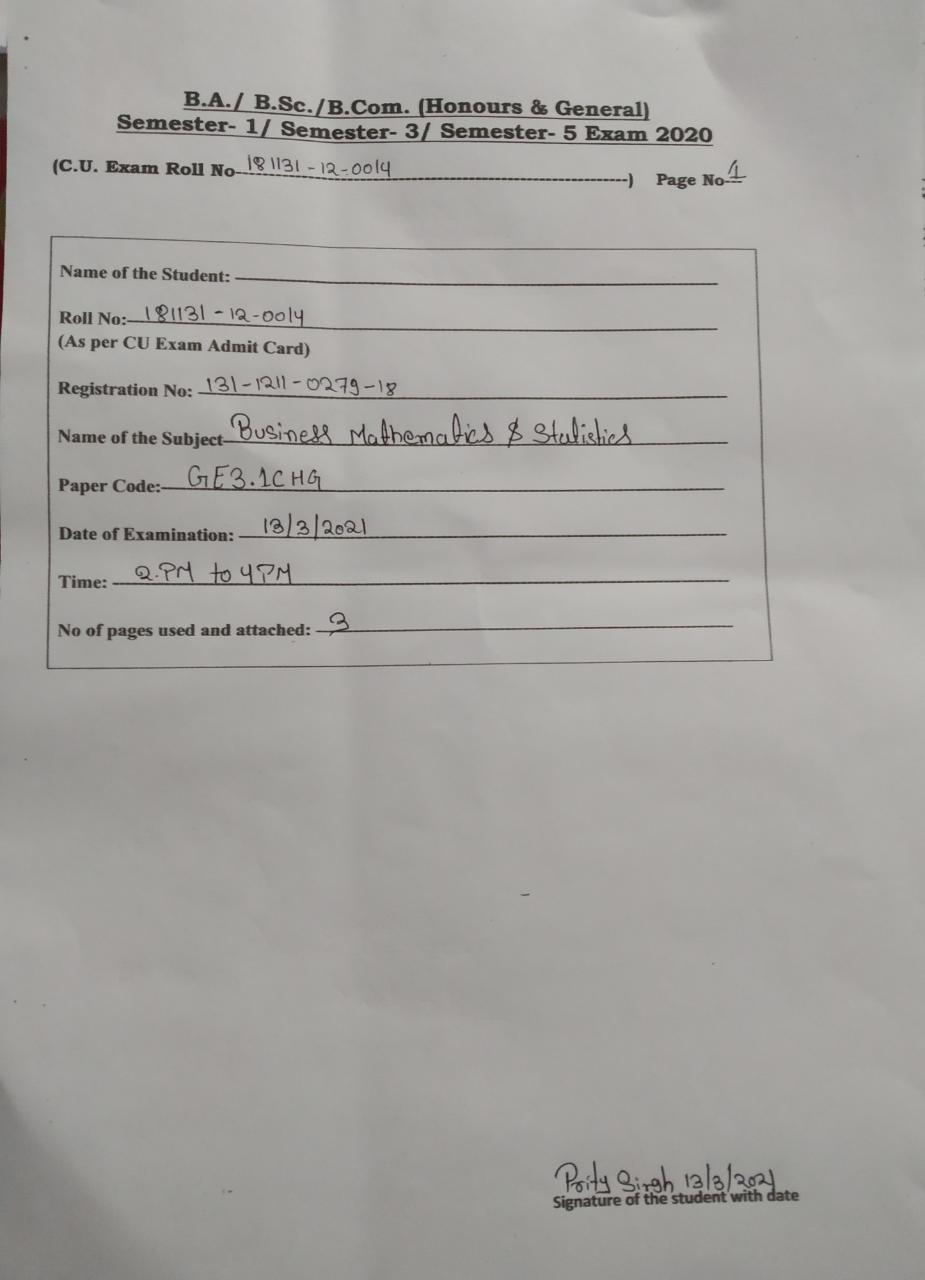 B.A./ B.Sc./B.Com. (Honours & General)
Semester- 1/ Semester- 3/ Semester- 5 Exam 2020
(C.U. Exam Roll No 181131-12-0014 ) Page No 1
Name of the Student:
Roll No:- 181131-12-0014
(As per CU Exam Admit Card)
Registration No: 131-1211-0279-18
Name of the Subject Business Mathematics & Statistics
Paper Code:- GE3.1CHG
Date of Examination: 13/3/2021
Time: 2.PM to 4PM
No of pages used and attached: 3
Prity Singh 13/3/2021
Signature of the student with date